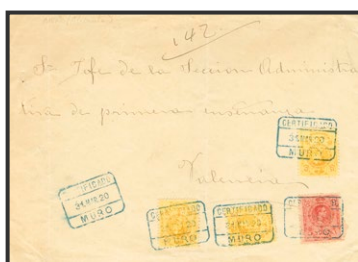 142
Sr Jefe de la Seccion Administra
tiva de primera enseñanza
Valencia
CERTIFICADO
31.MAR.20
MURO
CERTIFICADO
31.MAR.20
MURO
CERTIFICADO
MURO
CERTIFICADO
MURO
MURO